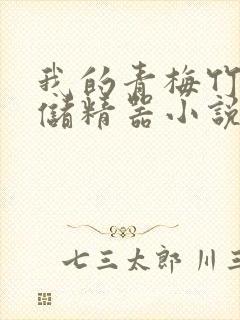 我的青梅竹
儲精器小說
七三太郎 川三